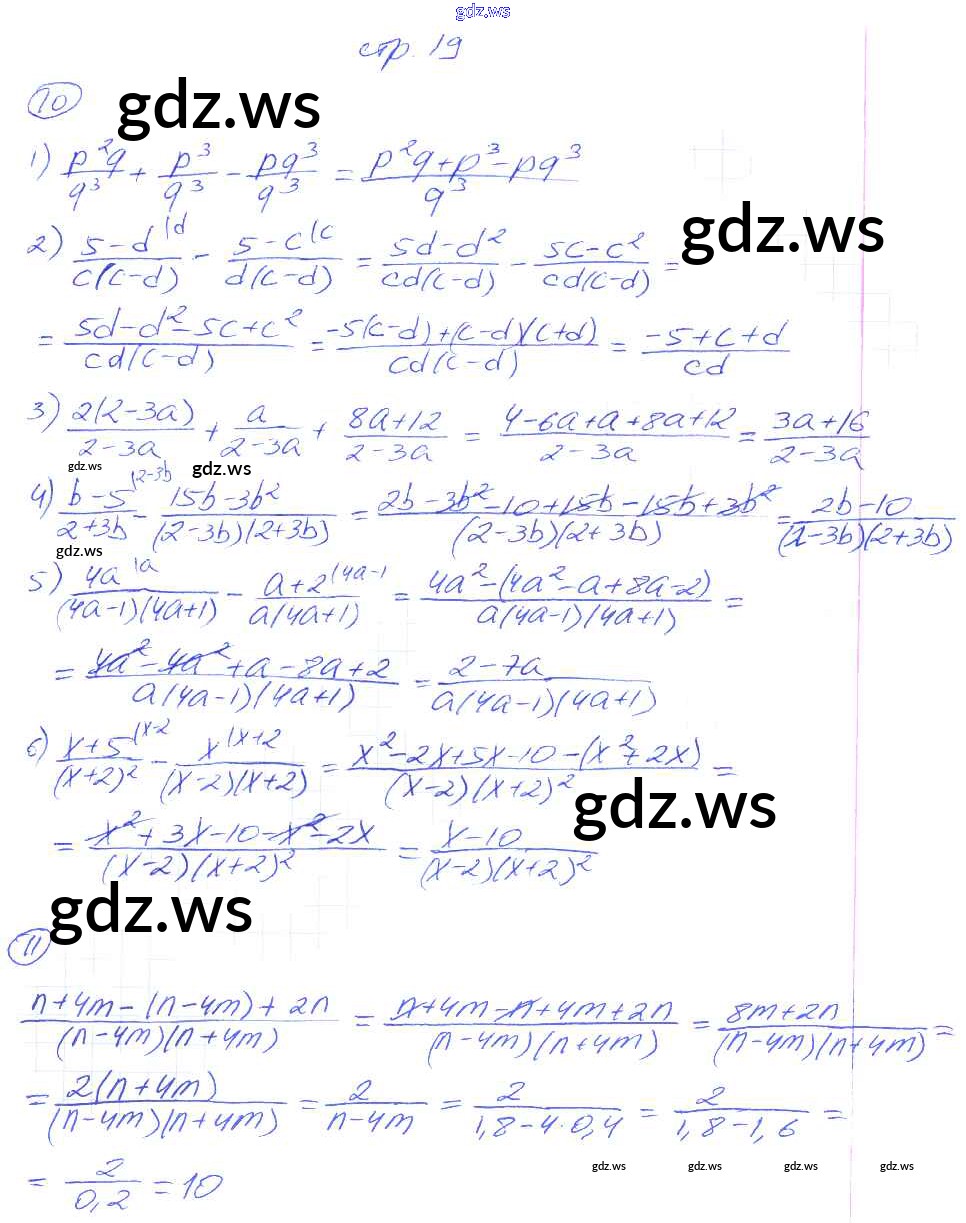 gdz.ws
стр. 19
10
gdz.ws
1) p²q/q³ + p³/q³ - pq³/q³ = (p²q+p³-pq³)/q³
gdz.ws
2) (5-d)/(c(c-d)) |d - (5-c)/(d(c-d)) |c = (5d-d²)/(cd(c-d)) - (5c-c²)/(cd(c-d)) =
= (5d-d²-5c+c²)/(cd(c-d)) = (-5(c-d)+(c-d)(c+d))/(cd(c-d)) = (-5+c+d)/cd
3) 2(2-3a)/(2-3a) + a/(2-3a) + (8a+12)/(2-3a) = (4-6a+a+8a+12)/(2-3a) = (3a+16)/(2-3a)
gdz.ws gdz.ws
4) (b-5)/(2+3b) |2-3b - (15b-3b²)/((2-3b)(2+3b)) = (2b-3b²-10+15b-15b+3b²)/((2-3b)(2+3b)) = (2b-10)/((2-3b)(2+3b))
gdz.ws
5) 4a/((4a-1)(4a+1)) |a - (a+2)/(a(4a+1)) |4a-1 = (4a²-(4a²-a+8a-2))/(a(4a-1)(4a+1)) =
= (4a²-4a²+a-8a+2)/(a(4a-1)(4a+1)) = (2-7a)/(a(4a-1)(4a+1))
6) (x+5)/(x+2)² |x-2 - x/((x-2)(x+2)) |x+2 = (x²-2x+5x-10-(x²+2x))/((x-2)(x+2)²) =
gdz.ws
= (x²+3x-10-x²-2x)/((x-2)(x+2)²) = (x-10)/((x-2)(x+2)²)
gdz.ws
11
(n+4m-(n-4m)+2n)/((n-4m)(n+4m)) = (n+4m-n+4m+2n)/((n-4m)(n+4m)) = (8m+2n)/((n-4m)(n+4m)) =
= 2(n+4m)/((n-4m)(n+4m)) = 2/(n-4m) = 2/(1,8-4·0,4) = 2/(1,8-1,6) =
= 2/0,2 = 10
gdz.ws gdz.ws gdz.ws gdz.ws